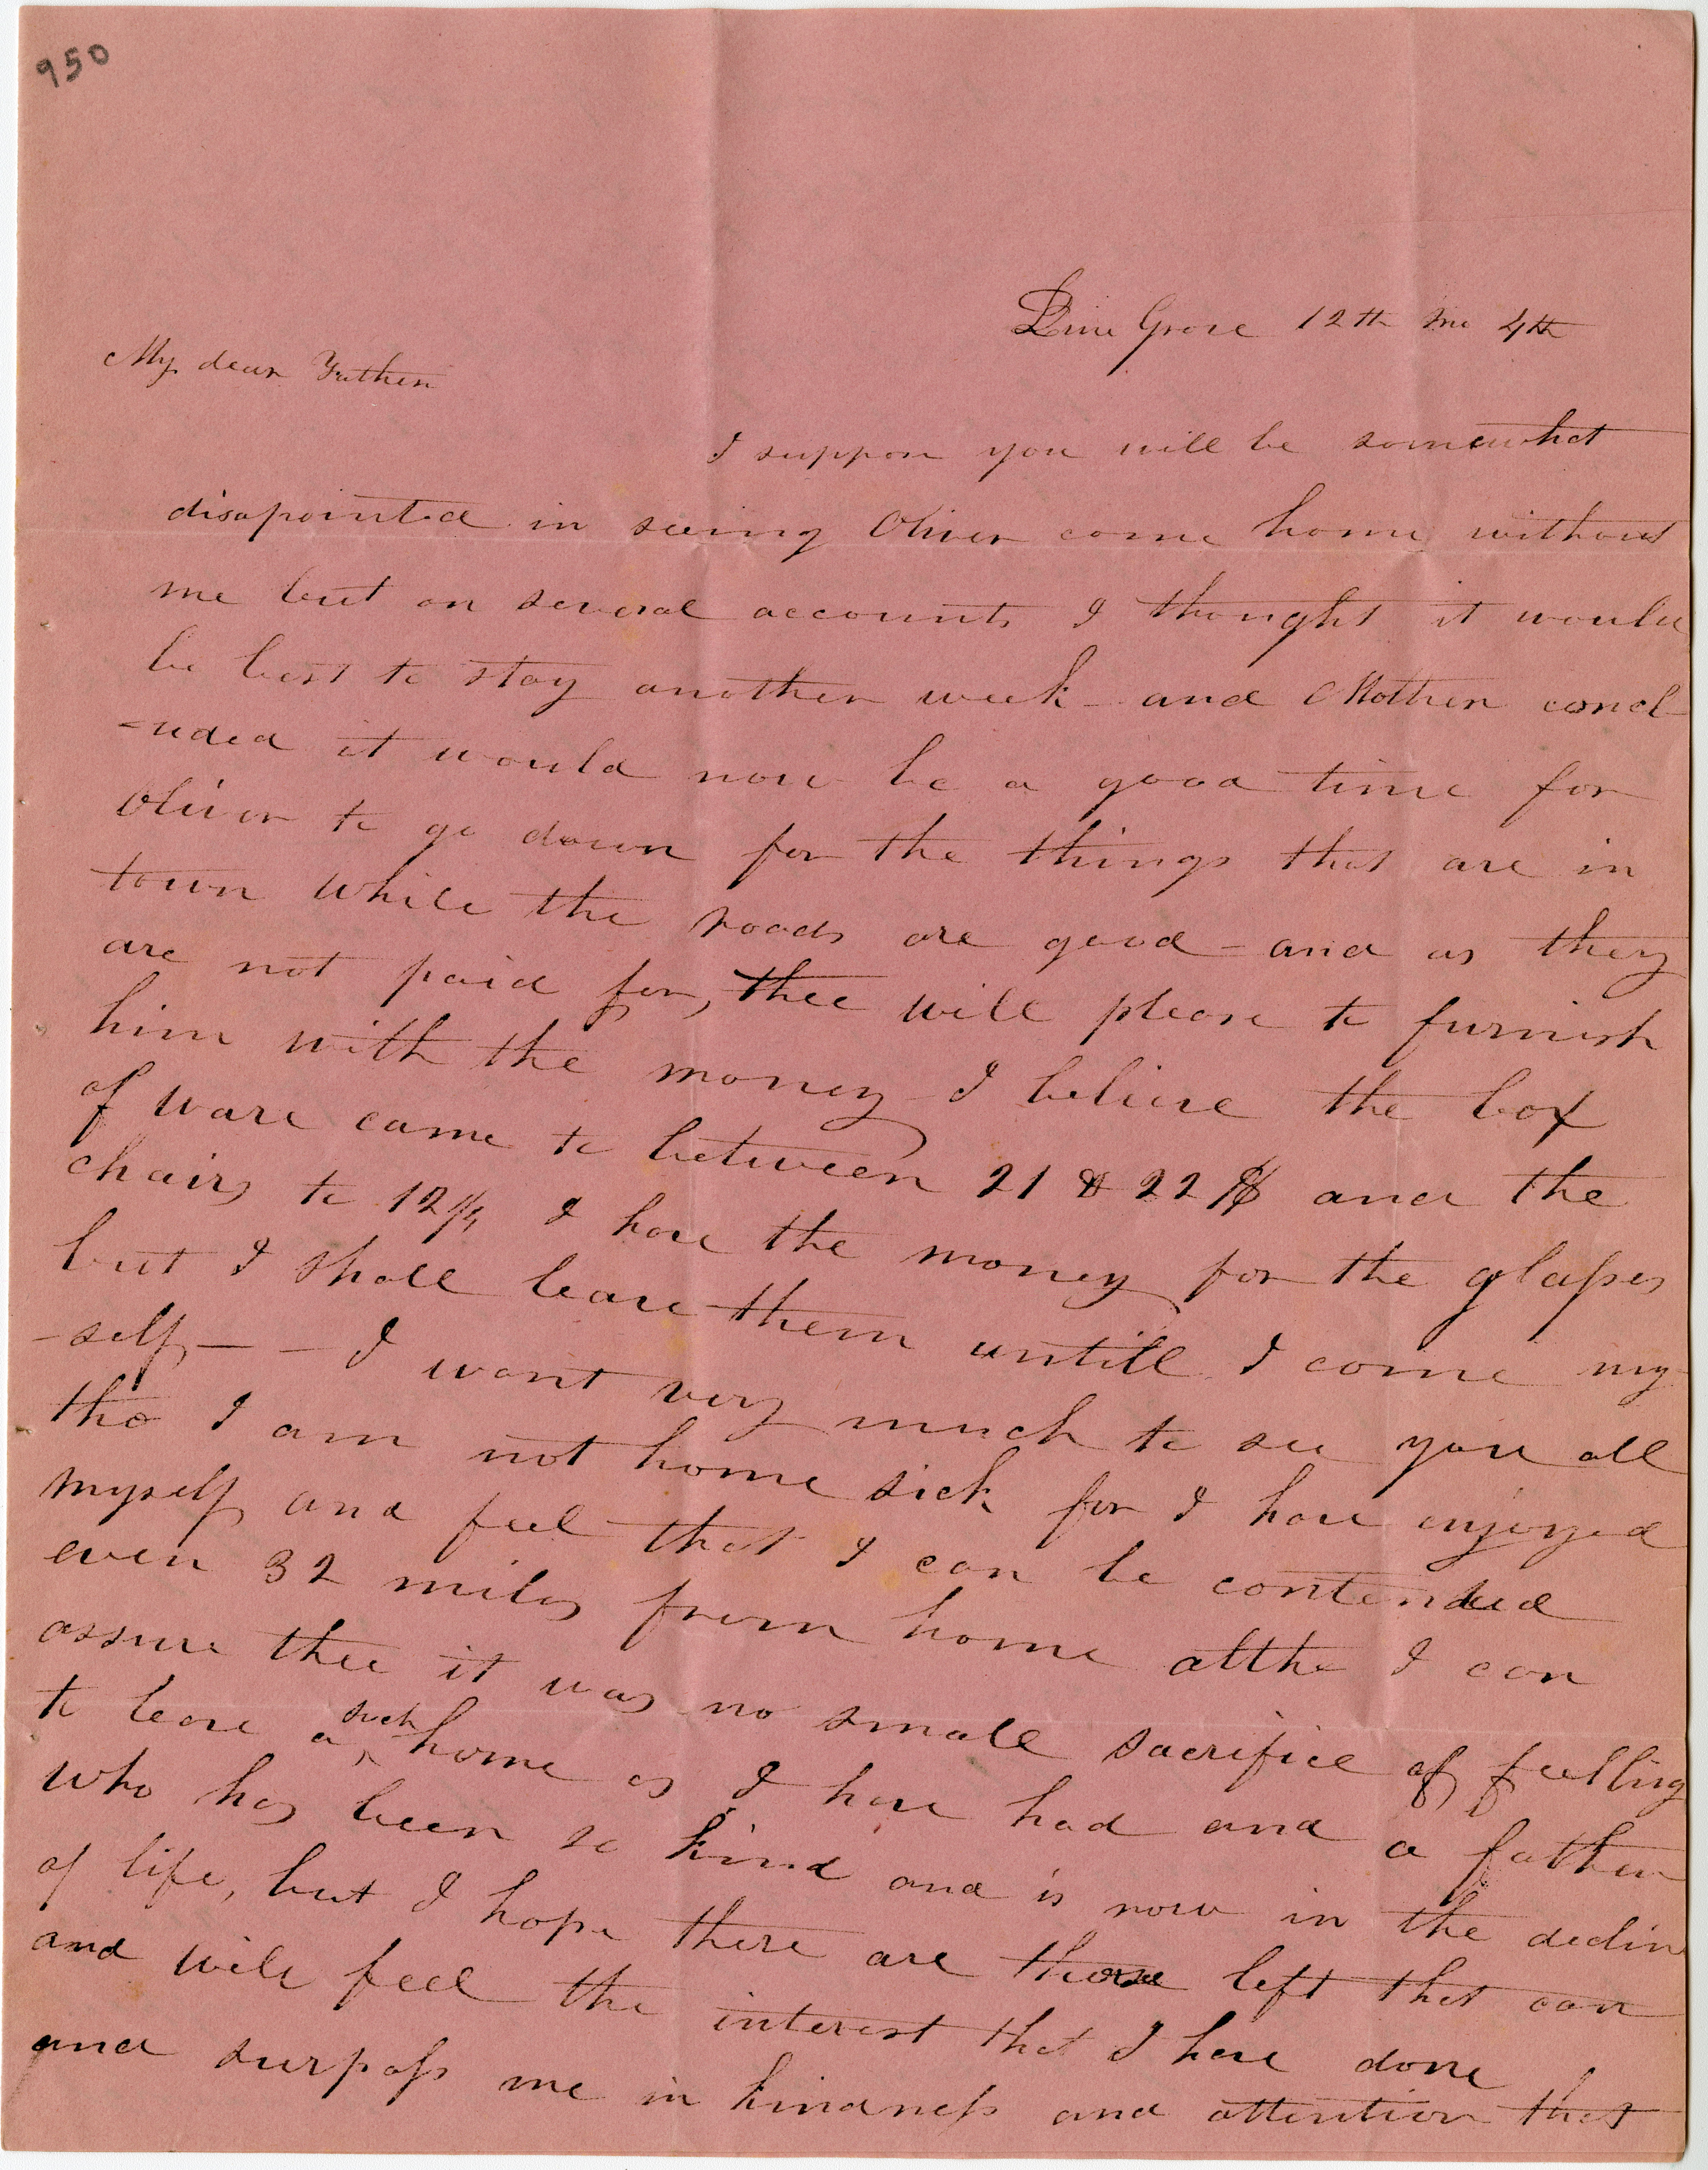 950
Pine Grove 12th mo 4th
My dear Father
I suppose you will be somewhat
disapointed in seeing Oliver come home without
me but on several accounts I thought it would
be best to stay another week - and Mother concl
-uded it would now be a good time for
Oliver to go down for the things that are in
town while the roads are good - and as they
are not paid for, thee will please to furnish
him with the money I believe the box
of ware came to between 21 & 22 $ and the
chairs to 12 $ I have the money for the glasses
but I shall leave them untill I come my
-self - - I want very much to see you all
tho I am not home sick for I have enjoyed
myself and feel that I can be contended
even 32 miles from home altho I can
assure thee it was no small sacrifice of feelling
to leave a such home as I have had and a father
who has been so kind and is now in the decline
of life, but I hope there are those left that can
and will feel the interest that I have done
and surpass me in kindness and attention that